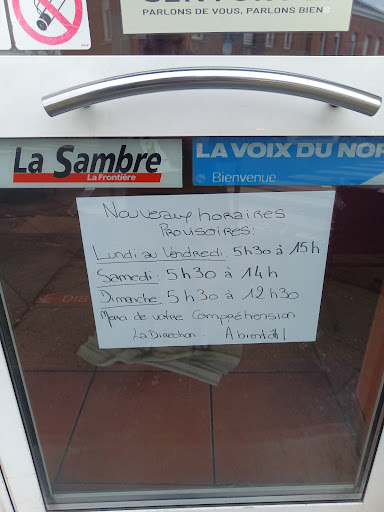 PARLONS DE VOUS, PARLONS BIENS
La Sambre
La Frontière
LA VOIX DU NOR
Bienvenue
Nouveaux horaires
Provisoires:
Lundi au Vendredi: 5h30 à 15h
Samedi: 5h30 à 14h
Dimanche: 5h30 à 12h30
Merci de votre Compréhension
La Direction. A bientôt!